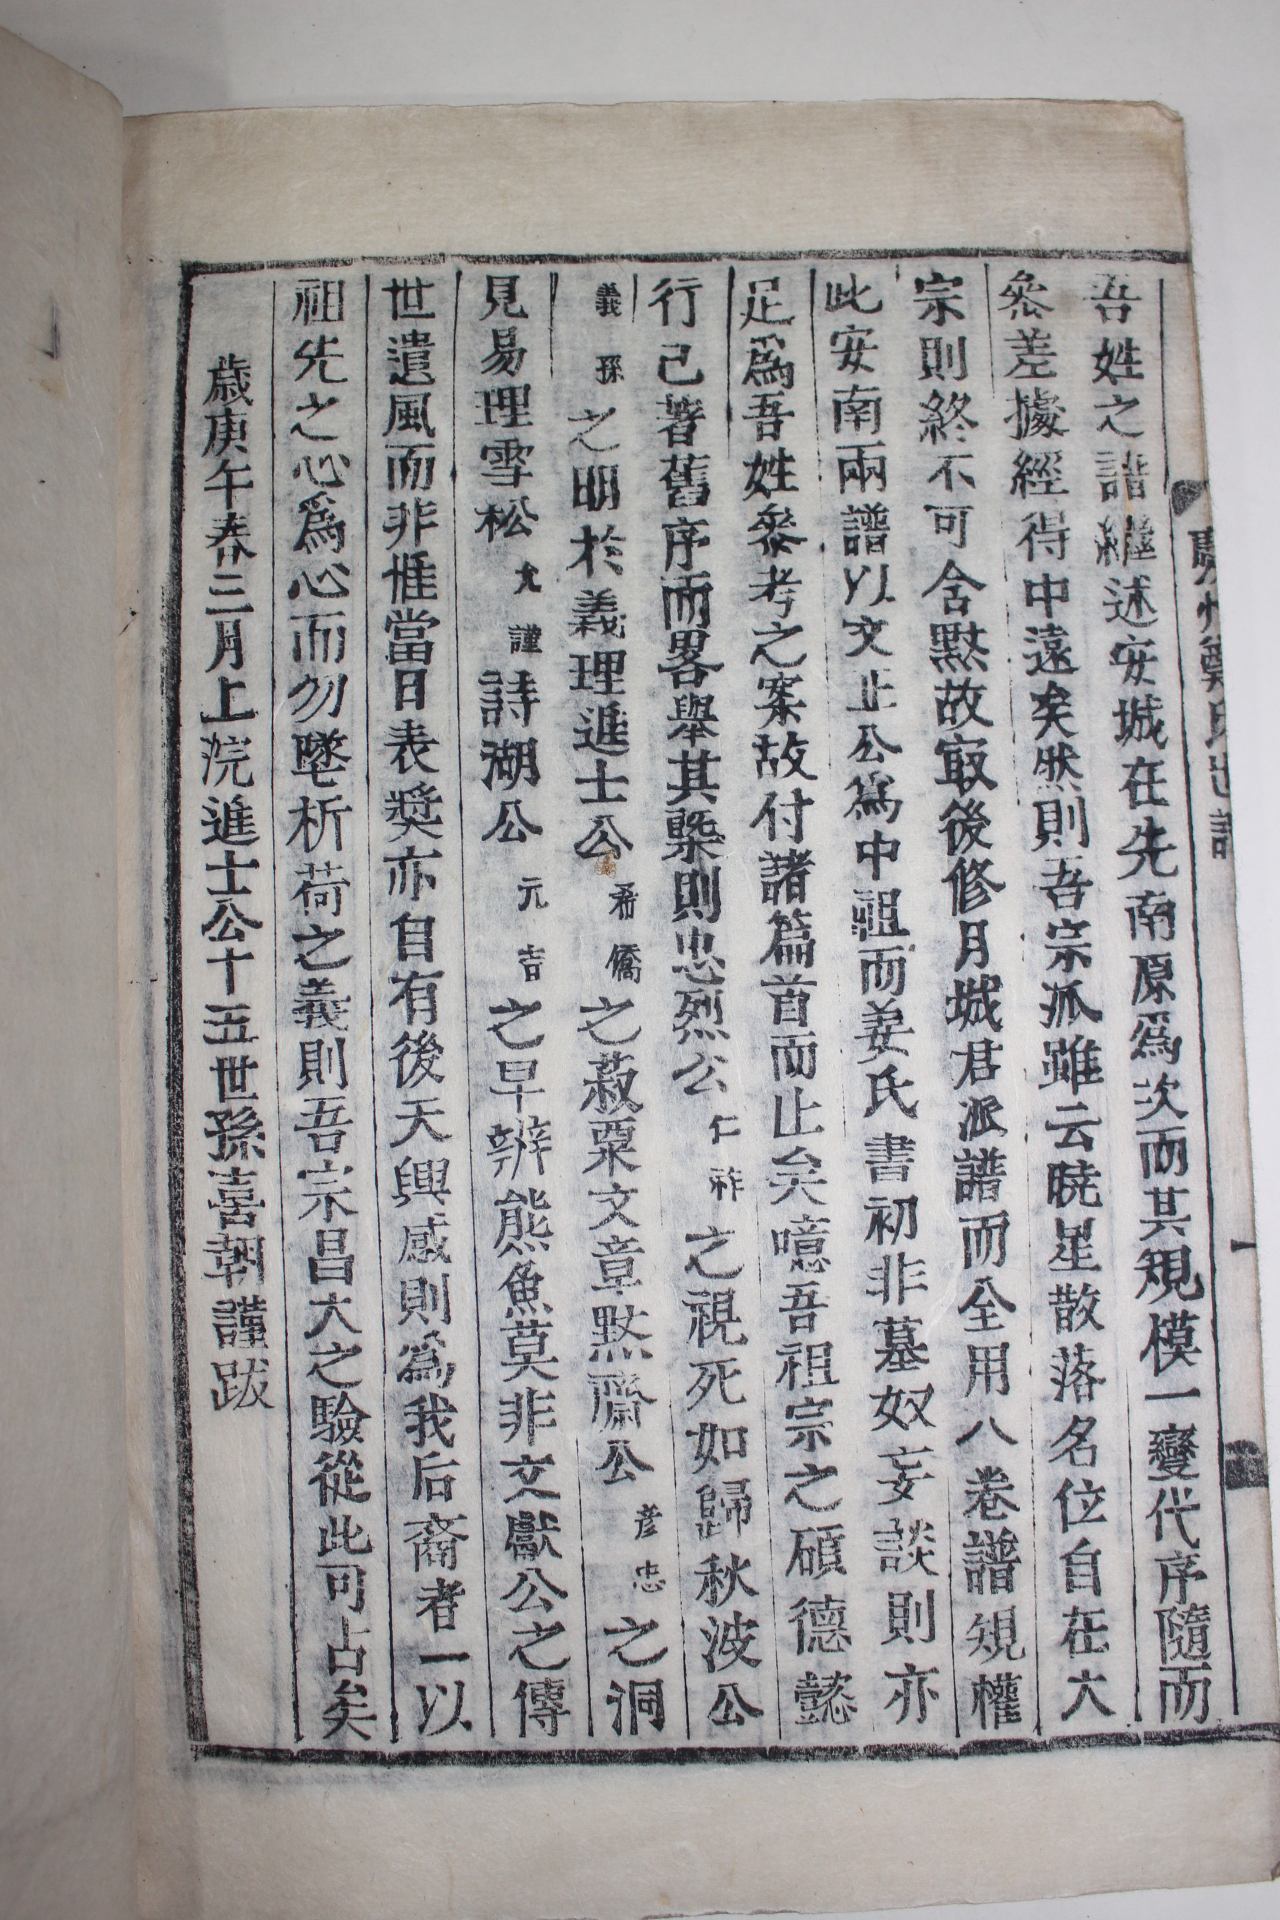 慶州鄭氏世譜
一
吾姓之譜繼述安城在先南原爲次而其規模一變代序隨而
叅差據經得中遠矣然則吾宗派雖云曉星散落名位自在大
宗則終不可含黙故㝡後修月城君派譜而全用八卷譜規權
此安南兩譜以文止公爲中祖而姜氏書初非墓奴妄談則亦
足爲吾姓叅考之案故付諸篇首而止矣噫吾祖宗之碩德懿
行己著舊序而畧擧其槩則忠烈公仁祚之視死如歸秋波公
義孫之明於義理進士公希僑之菽粟文章黙齋公彦忠之洞
見易理雪松允謹詩湖公元吉之早辨熊魚莫非文獻公之傳
世遺風而非惟當日表奬亦自有後天興感則爲我后裔者一以
祖先之心爲心而勿墜析荷之義則吾宗昌大之驗從此可占矣
歲庚午春三月上浣進士公十五世孫喜朝謹跋